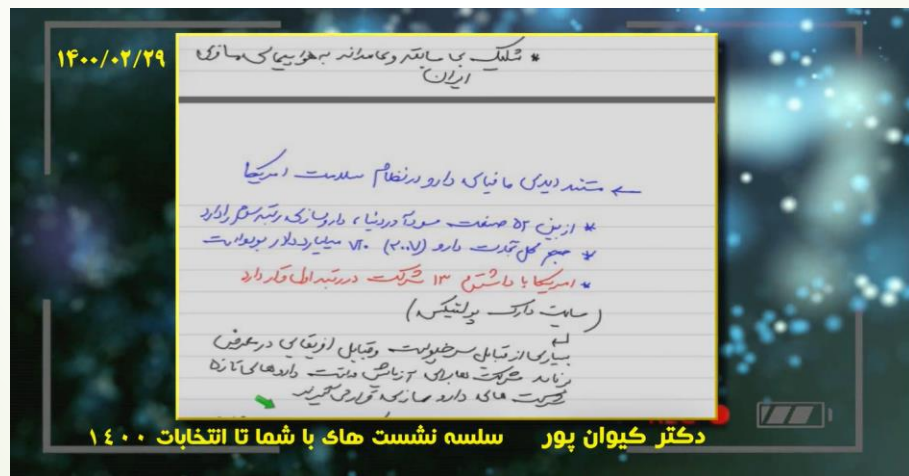 ۱۴۰۰/۰۲/۲۹
* شلیک بی سابقه و عامدانه به هواپیمای مسافری
ایران
← مستند دیدی مافیای دارو در نظام سلامت امریکا
* از بین ۵۲ صنعت سودآور دنیا، داروسازی رتبه سوم را دارد
* حجم کل تجارت دارو (۲۰۰۷) ۷۲۰ میلیارد دلار بوده است
* امریکا با داشتن ۱۳ شرکت در رتبه اول قرار دارد
(سایت دارک پولتیکس)
بسیاری از قبایل سرخپوست و قبایل افریقایی در معرض
برنامه شرکت ها برای آزمایش داروهای تازه
شرکت های دارو سازی قرار می گیرند
دکتر کیوان پور سلسه نشست های با شما تا انتخابات ۱۴۰۰